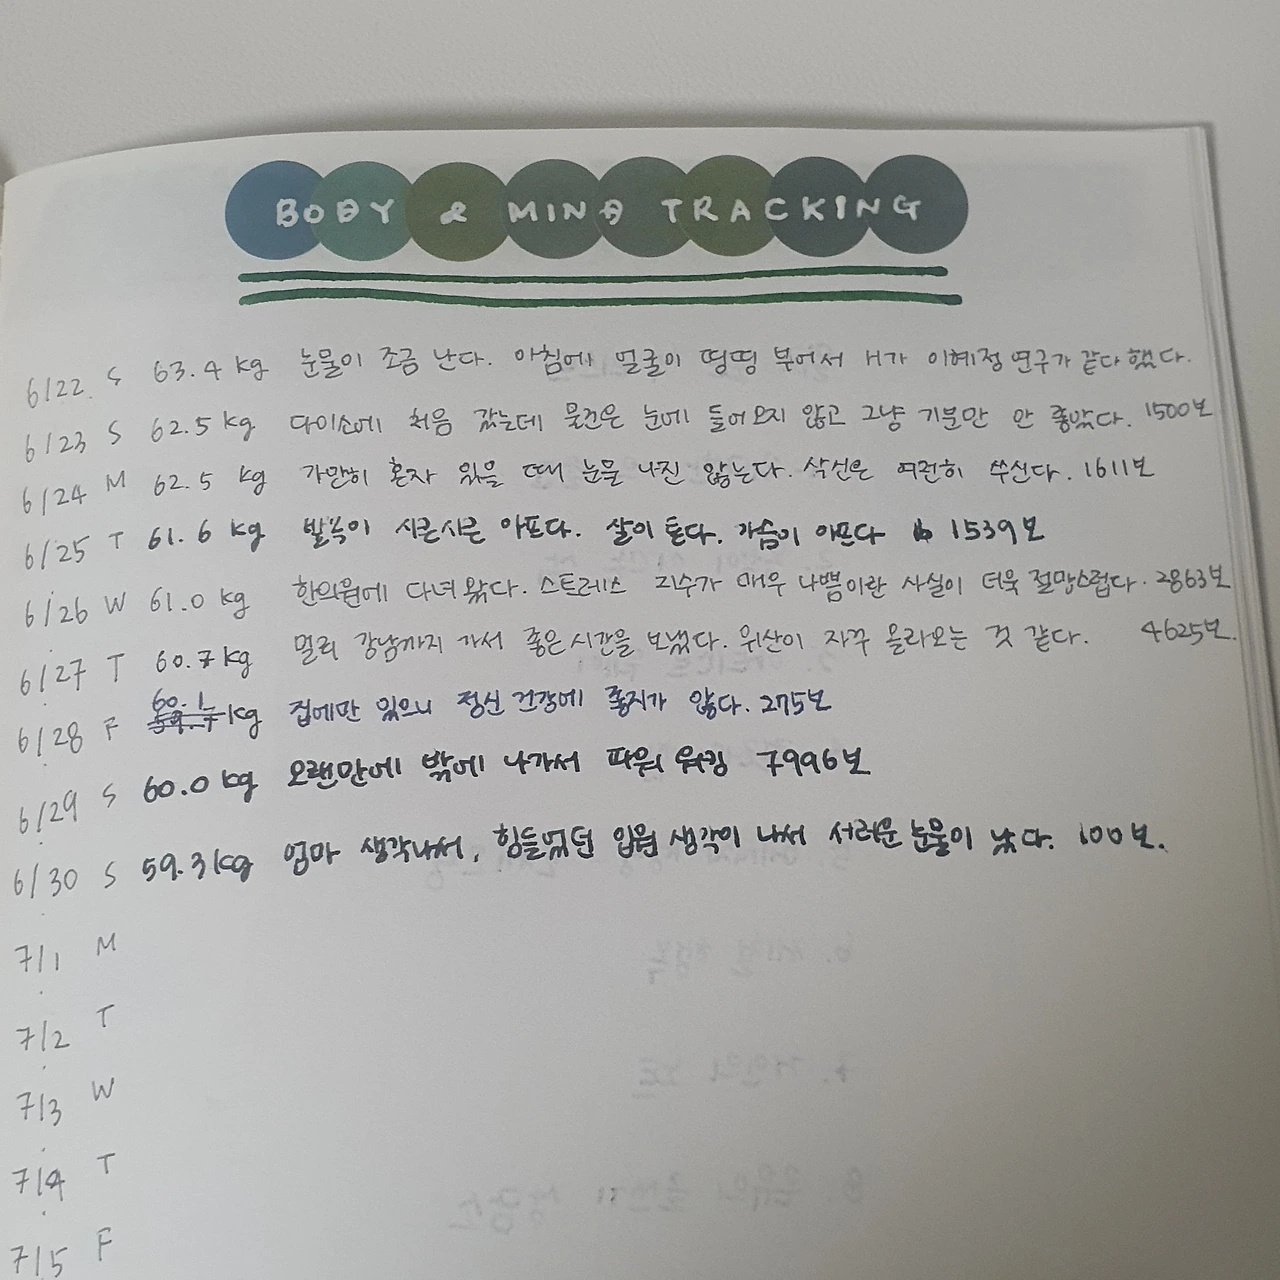 BODY & MIND TRACKING
6/22 S 63.4 kg 눈물이 조금 난다. 아침에 얼굴이 띵띵 부어서 H가 이혜정 연구가 같다 했다.
6/23 S 62.5 kg 다이소에 처음 갔는데 물건은 눈에 들어오지 않고 그냥 기분만 안 좋았다. 1500보
6/24 M 62.5 kg 가만히 혼자 있을 때 눈물 나진 않는다. 삭신은 여전히 쑤신다. 1611보
6/25 T 61.6 kg 발목이 시큰시큰 아프다. 살이 튼다. 가슴이 아프다 1539보
6/26 W 61.0 kg 한의원에 다녀왔다. 스트레스 지수가 매우 나쁨이란 사실이 더욱 절망스럽다. 2863보
6/27 T 60.7 kg 멀리 강남까지 가서 좋은 시간을 보냈다. 위산이 자꾸 올라오는 것 같다. 4625보.
6/28 F 60.1 kg 집에만 있으니 정신 건강에 좋지가 않다. 275보
6/29 S 60.0 kg 오랜만에 밖에 나가서 파워 워킹 7996보
6/30 S 59.3 kg 엄마 생각나서, 힘들었던 입원 생각이 나서 서러운 눈물이 났다. 100보.
7/1 M
7/2 T
7/3 W
7/4 T
7/5 F